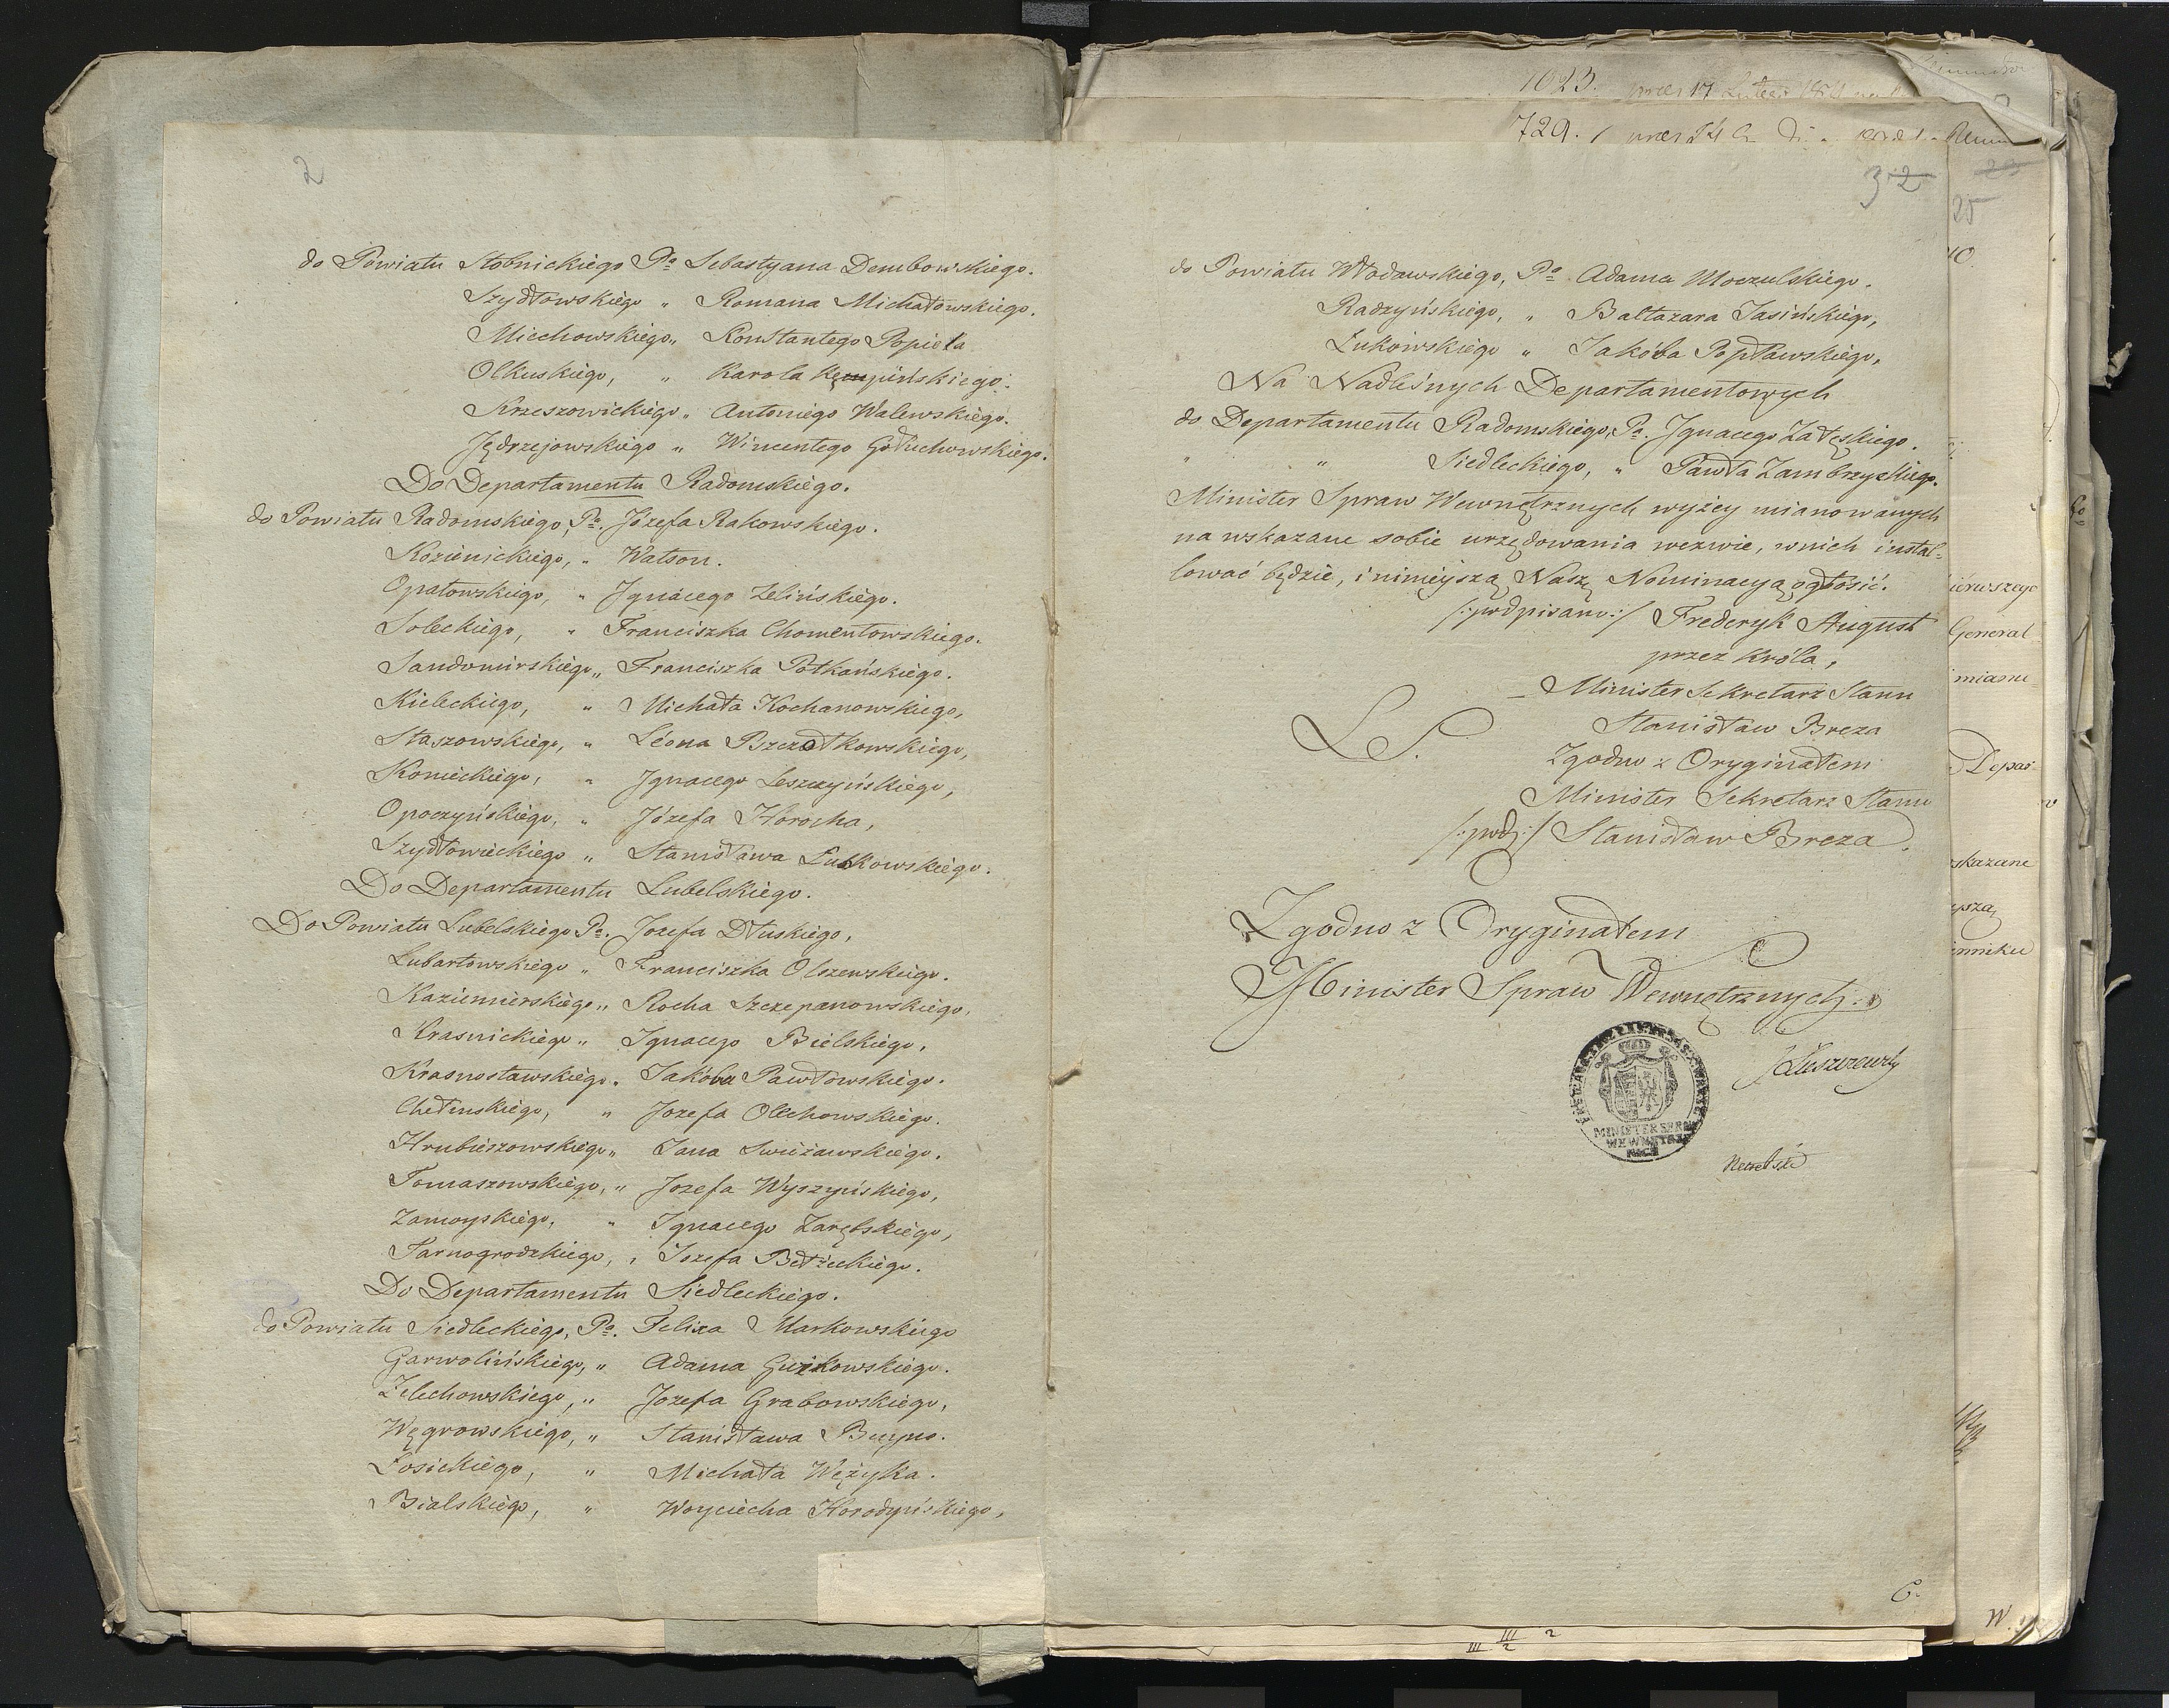 2
do Powiatu Stobnickiego Pa Sebastyana Dembowskiego.
Szydłowskiego " Romana Michałowskiego.
Miechowskiego " Konstantego Popiela
Olkuskiego, " Karola Kempińskiego.
Krzeszowickiego " Antoniego Walewskiego.
Jędrzejowskiego " Wincentego Gołuchowskiego.
Do Departamentu Radomskiego.
do Powiatu Radomskiego, Pa. Józefa Rakowskiego.
Kozienickiego, " Watson.
Opatowskiego, " Jgnacego Zelińskiego.
Soleckiego, " Franciszka Chomentowskiego.
Sandomirskiego " Franciszka Potkańskiego.
Kieleckiego, " Michała Kochanowskiego,
Staszowskiego, " Léona Rzeszotkowskiego,
Konieckiego, " Jgnacego Leszczyńskiego,
Opoczyńskiego, " Józefa Horocha,
Szydłowieckiego " Stanisława Kowskiego.
Do Departamentu Lubelskiego.
Do Powiatu Lubelskiego Pa. Jozefa Dłuskiego,
Lubartowskiego " Franciszka Olszewskiego.
Kazimierskiego " Rocha Szczepanowskiego,
Krasnickiego " Jgnacego Bielskiego,
Krasnostawskiego " Jakóba Pawłowskiego.
Chełmskiego, " Jozefa Olechowskiego.
Hrubieszowskiego " Jana Swiéżawskiego.
Tomaszowskiego, " Jozefa Wyszyńskiego,
Zamoyskiego, " Jgnacego Zarębskiego,
Tarnogrodzkiego, " Jozefa Bełżeckiego.
Do Departamentu Siedleckiego.
do Powiatu Siedleckiego, Pa. Felixa Markowskiego
Garwolińskiego, " Adama Guzkowskiego.
Żelechowskiego, " Jozefa Grabowskiego,
Węgrowskiego, " Stanisława Buyno.
Łosickiego, " Michała Wężyka.
Bialskiego, " Woyciecha Horodyńskiego,
1023.
729.
3 2
do Powiatu Włodawskiego, Pa Adama Moczulskiego.
Radzyńskiego, " Baltazara Jasińskiego,
Łukowskiego " Jakóba Popławskiego,
Na Nadleśnych Departamentowych
do Departamentu Radomskiego, Pa. Jgnacego Załęskiego.
" " Siedleckiego, " Pawła Zambrzyckiego.
Minister Spraw Wewnętrznych wyżey mianowanych
na wskazane sobie urzędowania wezwie, wnich instal-
lować będzie, i ninieyszą Naszę Nominacyą ogłosić.
/:podpisano:/ Frederyk August
przez Króla,
Minister Sekretarz Stanu
Stanisław Breza
L S.
Zgodno z Oryginałem
Minister Sekretarz Stanu
/:podp:/ Stanisław Breza.
Zgodno z Oryginałem
Minister Spraw Wewnętrznych.
MINISTER SPRAW
WEWNĘTRZ
NYCH
23
25
10.
General
Depar-
wskazane
C.
W.